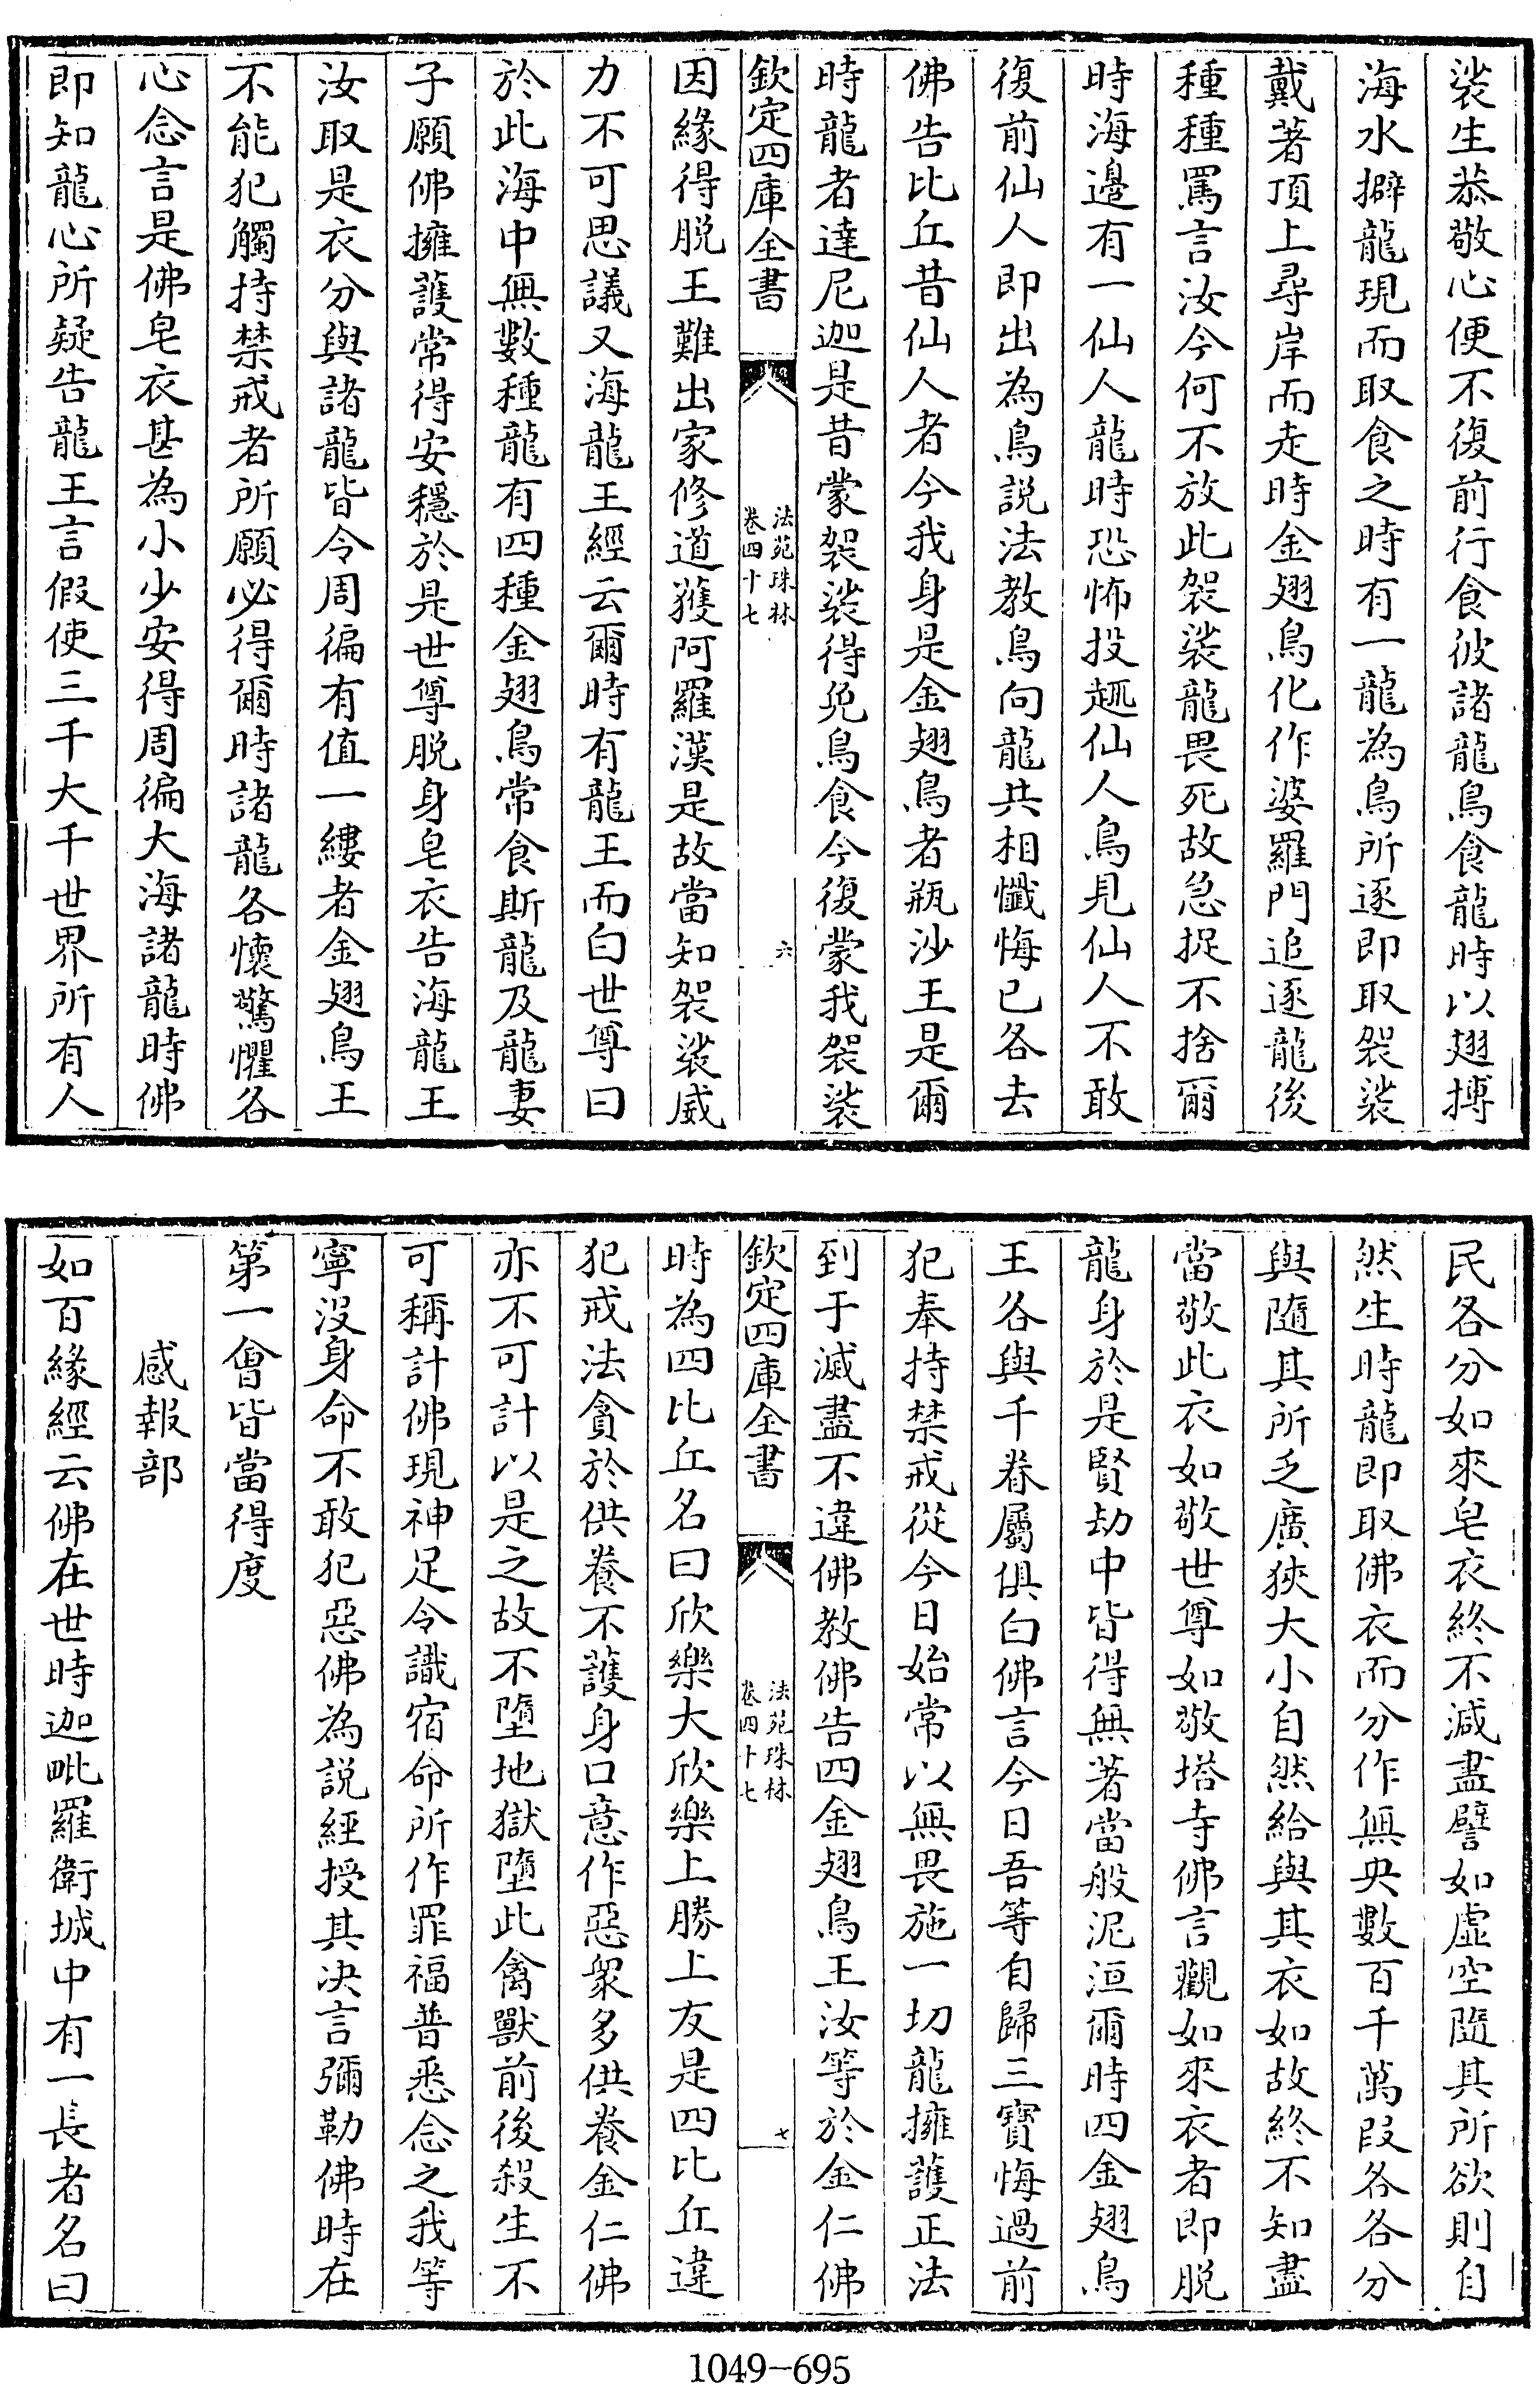 裟生恭敬心便不復前行食彼諸龍鳥食龍時以翅搏
海水擗龍現而取食之時有一龍為鳥所逐即取袈裟
戴著頂上尋岸而走時金翅鳥化作婆羅門追逐龍後
種種罵言汝今何不放此袈裟龍畏死故急捉不捨爾
時海邊有一仙人龍時恐怖投趣仙人鳥見仙人不敢
復前仙人即出為鳥説法教鳥向龍共相懺悔已各去
佛告比丘昔仙人者今我身是金翅鳥者瓶沙王是爾
時龍者達尼迦是昔蒙袈裟得免鳥食今復蒙我袈裟
欽定四庫全書
法苑珠林
卷四十七
六
因緣得脱王難出家修道獲阿羅漢是故當知袈裟威
力不可思議又海龍王經云爾時有龍王而白世尊曰
於此海中無數種龍有四種金翅鳥常食斯龍及龍妻
子願佛擁護常得安穩於是世尊脱身皂衣告海龍王
汝取是衣分與諸龍皆令周徧有值一縷者金翅鳥王
不能犯觸持禁戒者所願必得爾時諸龍各懷驚懼各
心念言是佛皂衣甚為小少安得周徧大海諸龍時佛
即知龍心所疑告龍王言假使三千大千世界所有人
民各分如來皂衣終不減盡譬如虛空隨其所欲則自
然生時龍即取佛衣而分作無央數百千萬段各各分
與隨其所乏廣狹大小自然給與其衣如故終不知盡
當敬此衣如敬世尊如敬塔寺佛言觀如來衣者即脱
龍身於是賢劫中皆得無著當般泥洹爾時四金翅鳥
王各與千眷屬俱白佛言今日吾等自歸三寶悔過前
犯奉持禁戒從今日始常以無畏施一切龍擁護正法
到于滅盡不違佛教佛告四金翅鳥王汝等於金仁佛
欽定四庫全書
法苑珠林
卷四十七
七
時為四比丘名曰欣樂大欣樂上勝上友是四比丘違
犯戒法貪於供養不護身口意作惡衆多供養金仁佛
亦不可計以是之故不墮地獄墮此禽獸前後殺生不
可稱計佛現神足令識宿命所作罪福普悉念之我等
寧沒身命不敢犯惡佛為説經授其决言彌勒佛時在
第一會皆當得度
感報部
如百緣經云佛在世時迦毗羅衛城中有一長者名曰
1049-695